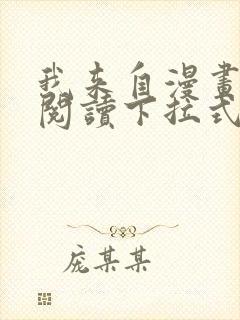 我来自漫畫
閱讀下拉式
庞某某